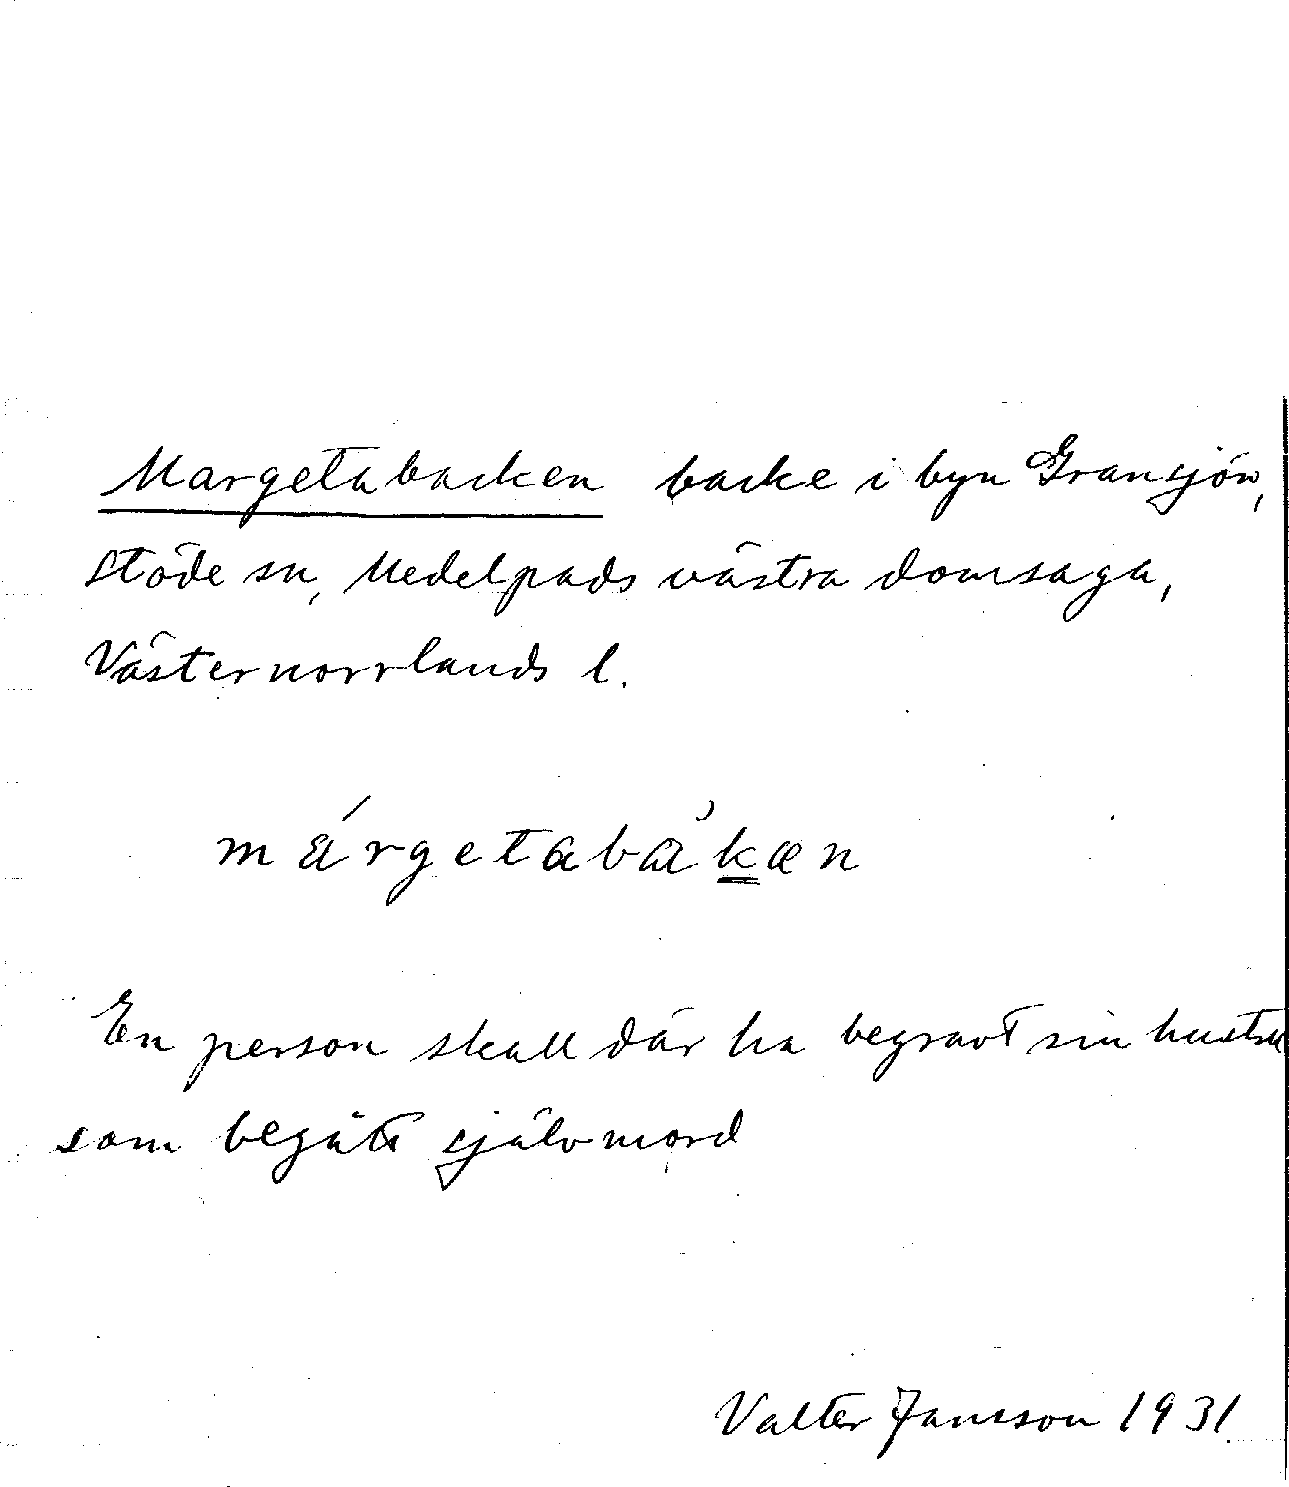 Margetabacken backe i byn Gransjön,
Stöde sn, Medelpads västra domsaga,
Västernorrlands l.
márgetabàk̳æn
En person skall där ha begravt sin hustru
som begått självmord
Valter Jansson 1931